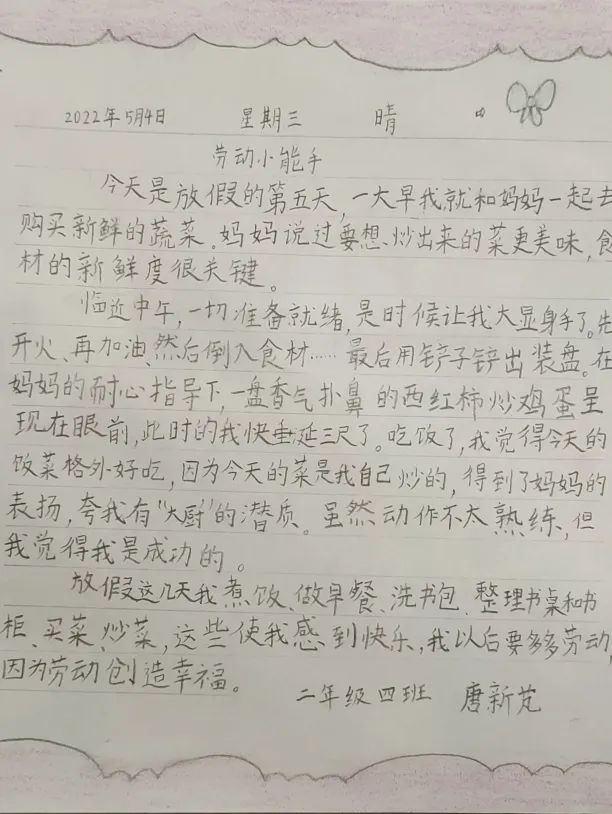 2022年5月4日 星期三 晴
劳动小能手
今天是放假的第五天,一大早我就和妈妈一起去
购买新鲜的蔬菜。妈妈说过要想炒出来的菜更美味,食
材的新鲜度很关键。
临近中午,一切准备就绪,是时候让我大显身手了。先
开火、再加油、然后倒入食材……最后用铲子铲出装盘。在
妈妈的耐心指导下,一盘香气扑鼻的西红柿炒鸡蛋呈
现在眼前,此时的我快垂延三尺了。吃饭了,我觉得今天的
饭菜格外好吃,因为今天的菜是我自己炒的,得到了妈妈的
表扬,夸我有“大厨”的潜质。虽然动作不太熟练,但
我觉得我是成功的。
放假这几天我煮饭、做早餐、洗书包、整理书桌和书
柜、买菜、炒菜,这些使我感到快乐,我以后要多多劳动,
因为劳动创造幸福。
二年级四班 唐新